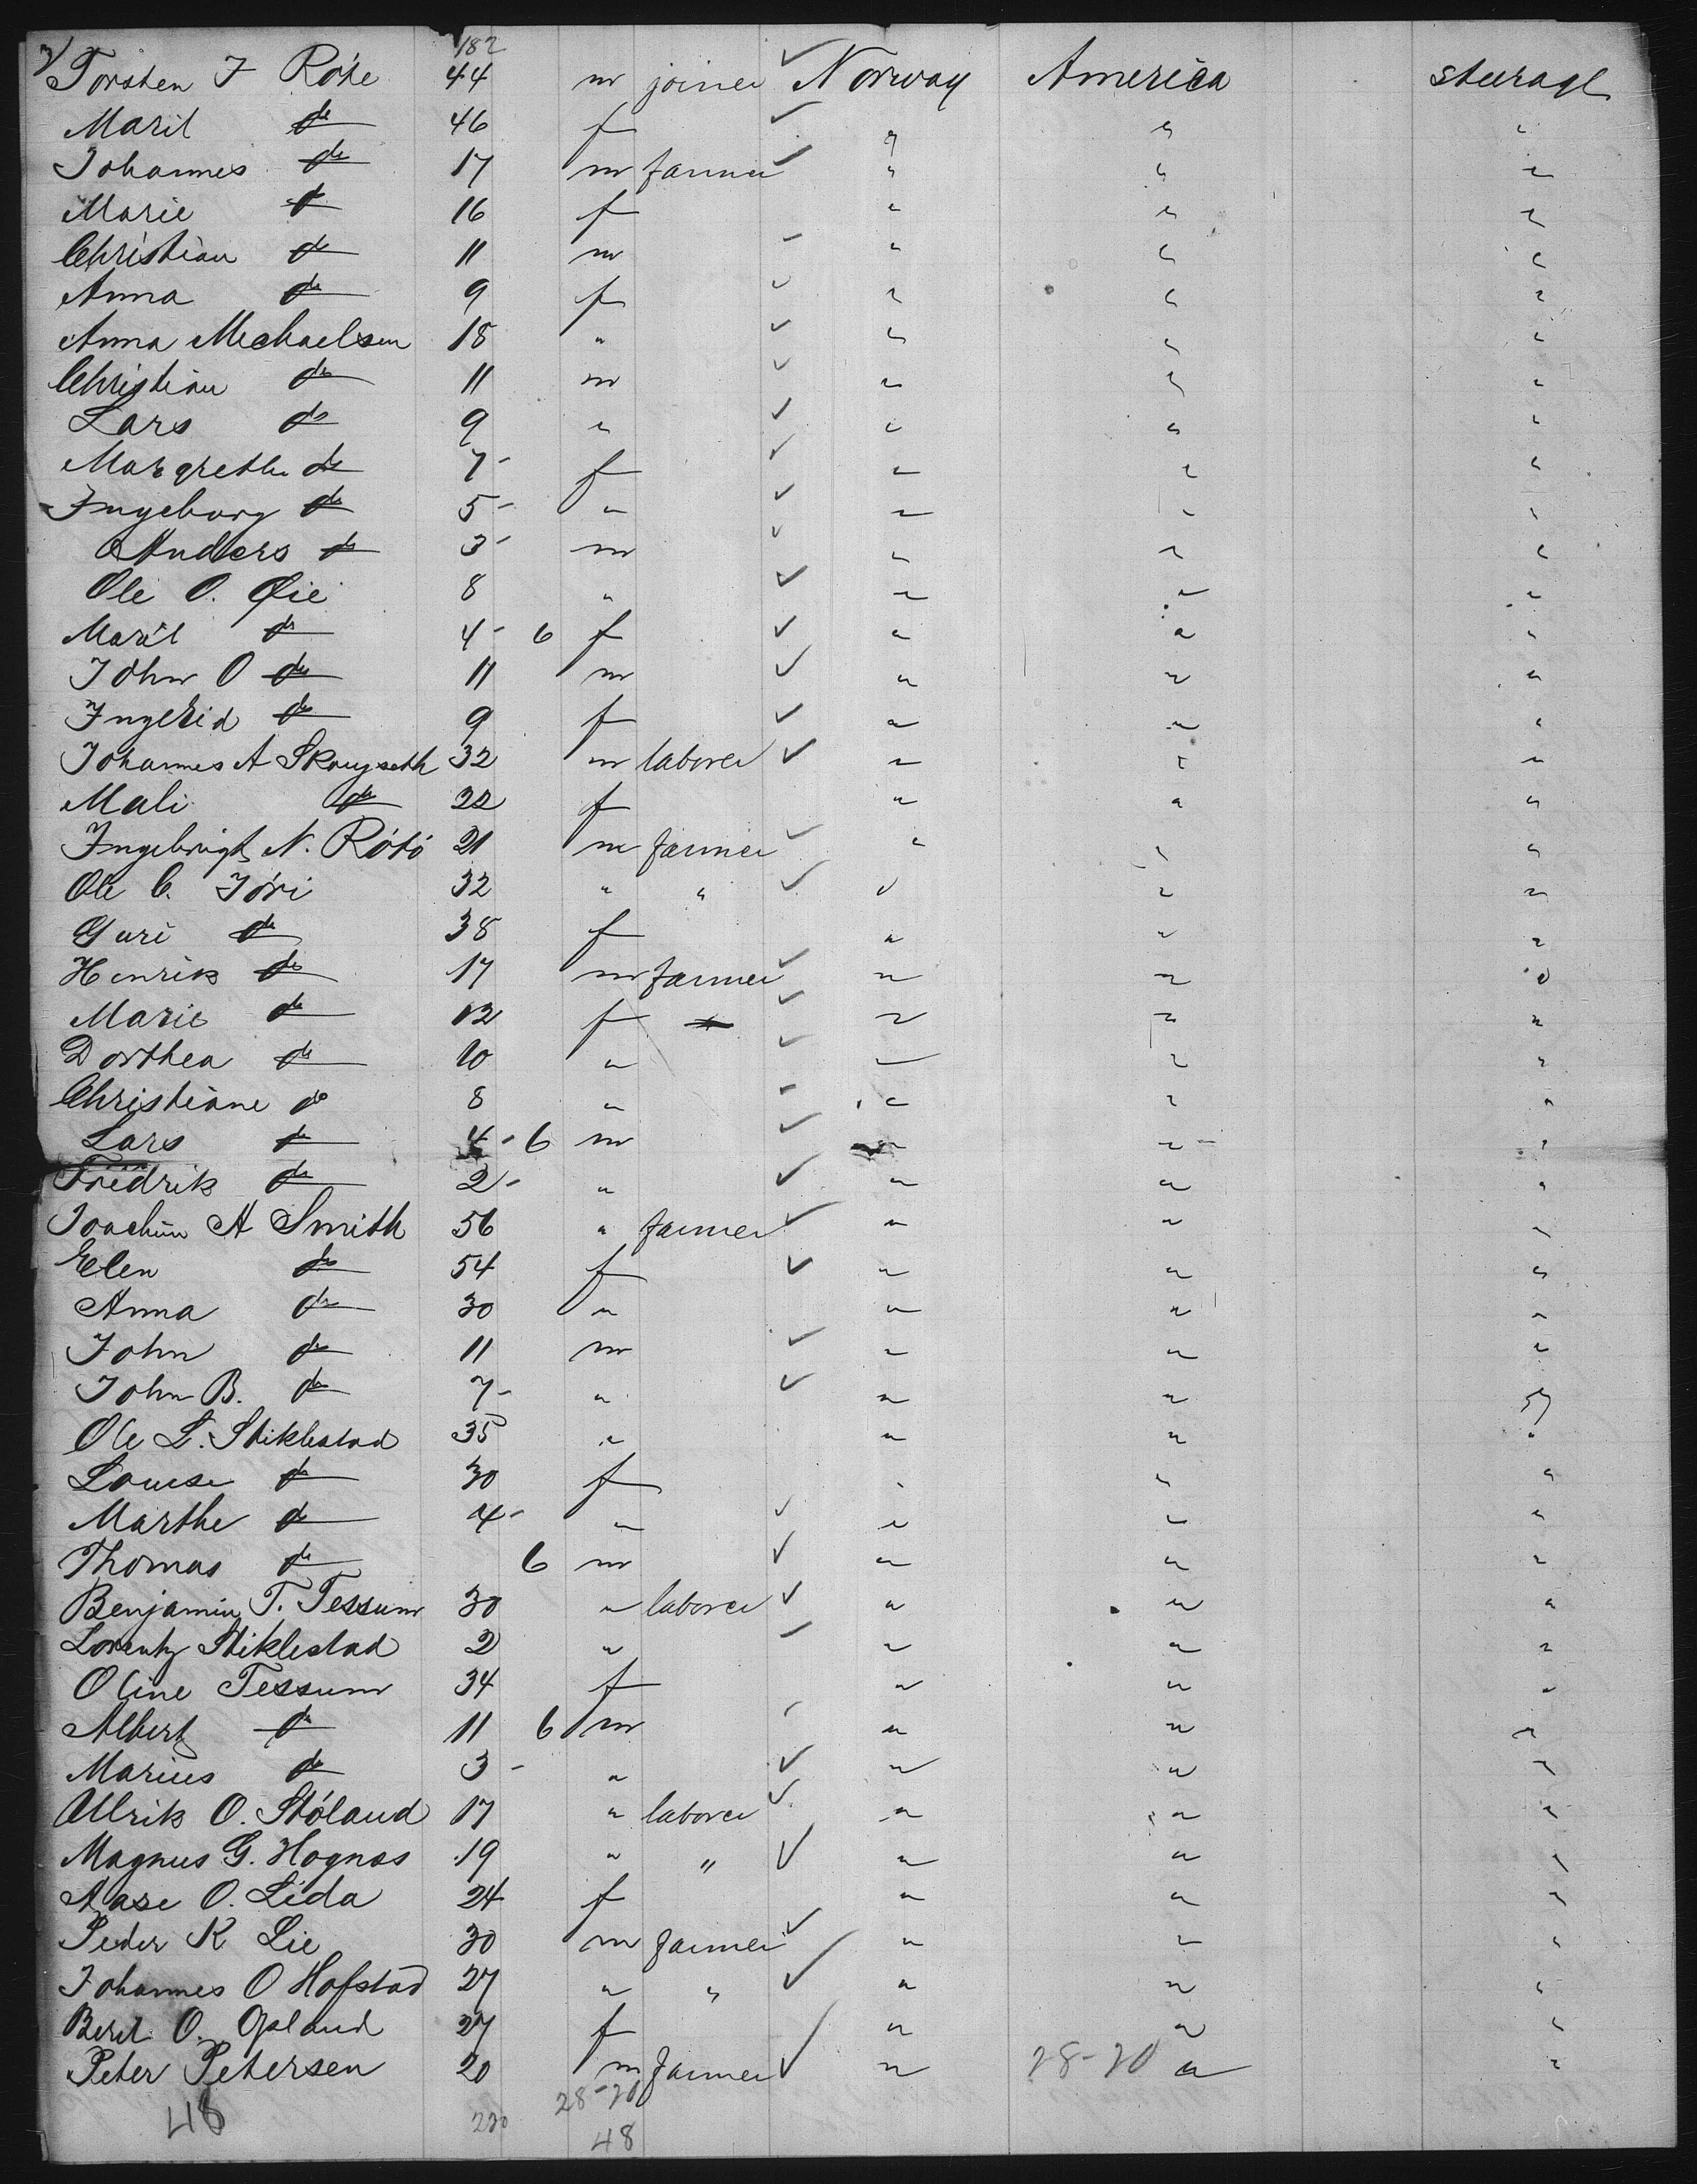 3/ 182
Torsten J Röte 44 m joiner ✓ Norway America steerage
Marit do 46 f ✓ " " "
Johannes do 17 m farmer ✓ " " "
Marie do 16 f " " "
Christian do 11 m " " "
Anna do 9 f ✓ " " "
Anna Michaelsen 18 " ✓ " " "
Christian do 11 m ✓ " " "
Lars do 9 " ✓ " " "
Margrethe do 7 - f ✓ " " "
Ingeborg do 5 - " ✓ " " "
Anders do 3 - m ✓ " " "
Ole O. Øie 8 " ✓ " " "
Marit do 4 - 6 f ✓ " " "
John O do 11 m ✓ " " "
Ingerid do 9 f ✓ " " "
Johannes A 32 m laborer ✓ " " "
Mali do 22 f " " "
Ingebrigt N. Rötö 21 m farmer ✓ " " "
Ole C. Jöri 32 " " ✓ " " "
Guri do 38 f " " "
Henrik do 17 m farmer ✓ " " "
Marie do 12 f ✓ " " "
Dorthea do 10 " ✓ " " "
Christiane do 8 " " " "
Lars do 4 - 6 m ✓ " " "
Fredrik do 2 - " ✓ " " "
Joachim A Smith 56 " farmer ✓ " " "
Elen do 54 f ✓ " " "
Anna do 30 " " " "
John do 11 m ✓ " " "
John B. do 7 - " ✓ " " "
Ole L. Stiklestad 35 " " " "
Louise do 30 f " " "
Marthe do 4 - " ✓ " " "
Thomas do 6 m ✓ " " "
Benjamin T. Tessum 30 " laborer ✓ " " "
Lorentz Stiklestad 2 " ✓ " " "
Oline Tessum 34 f " " "
Albert do 11 6 m " " "
Marius do 3 - " ✓ " " "
Ullrik O. Stöland 17 " laborer ✓ " " "
Magnus G. Hognas 19 " " ✓ " " "
Aase O. Lida 24 f " " "
Peder K Lie 30 m farmer ✓ " " "
Johannes O Hofstad 27 " " ✓ " " "
Berit O. Opland 27 f " " "
Peter Petersen 20 m farmer ✓ " 28-20 " "
28-20
48 220 48